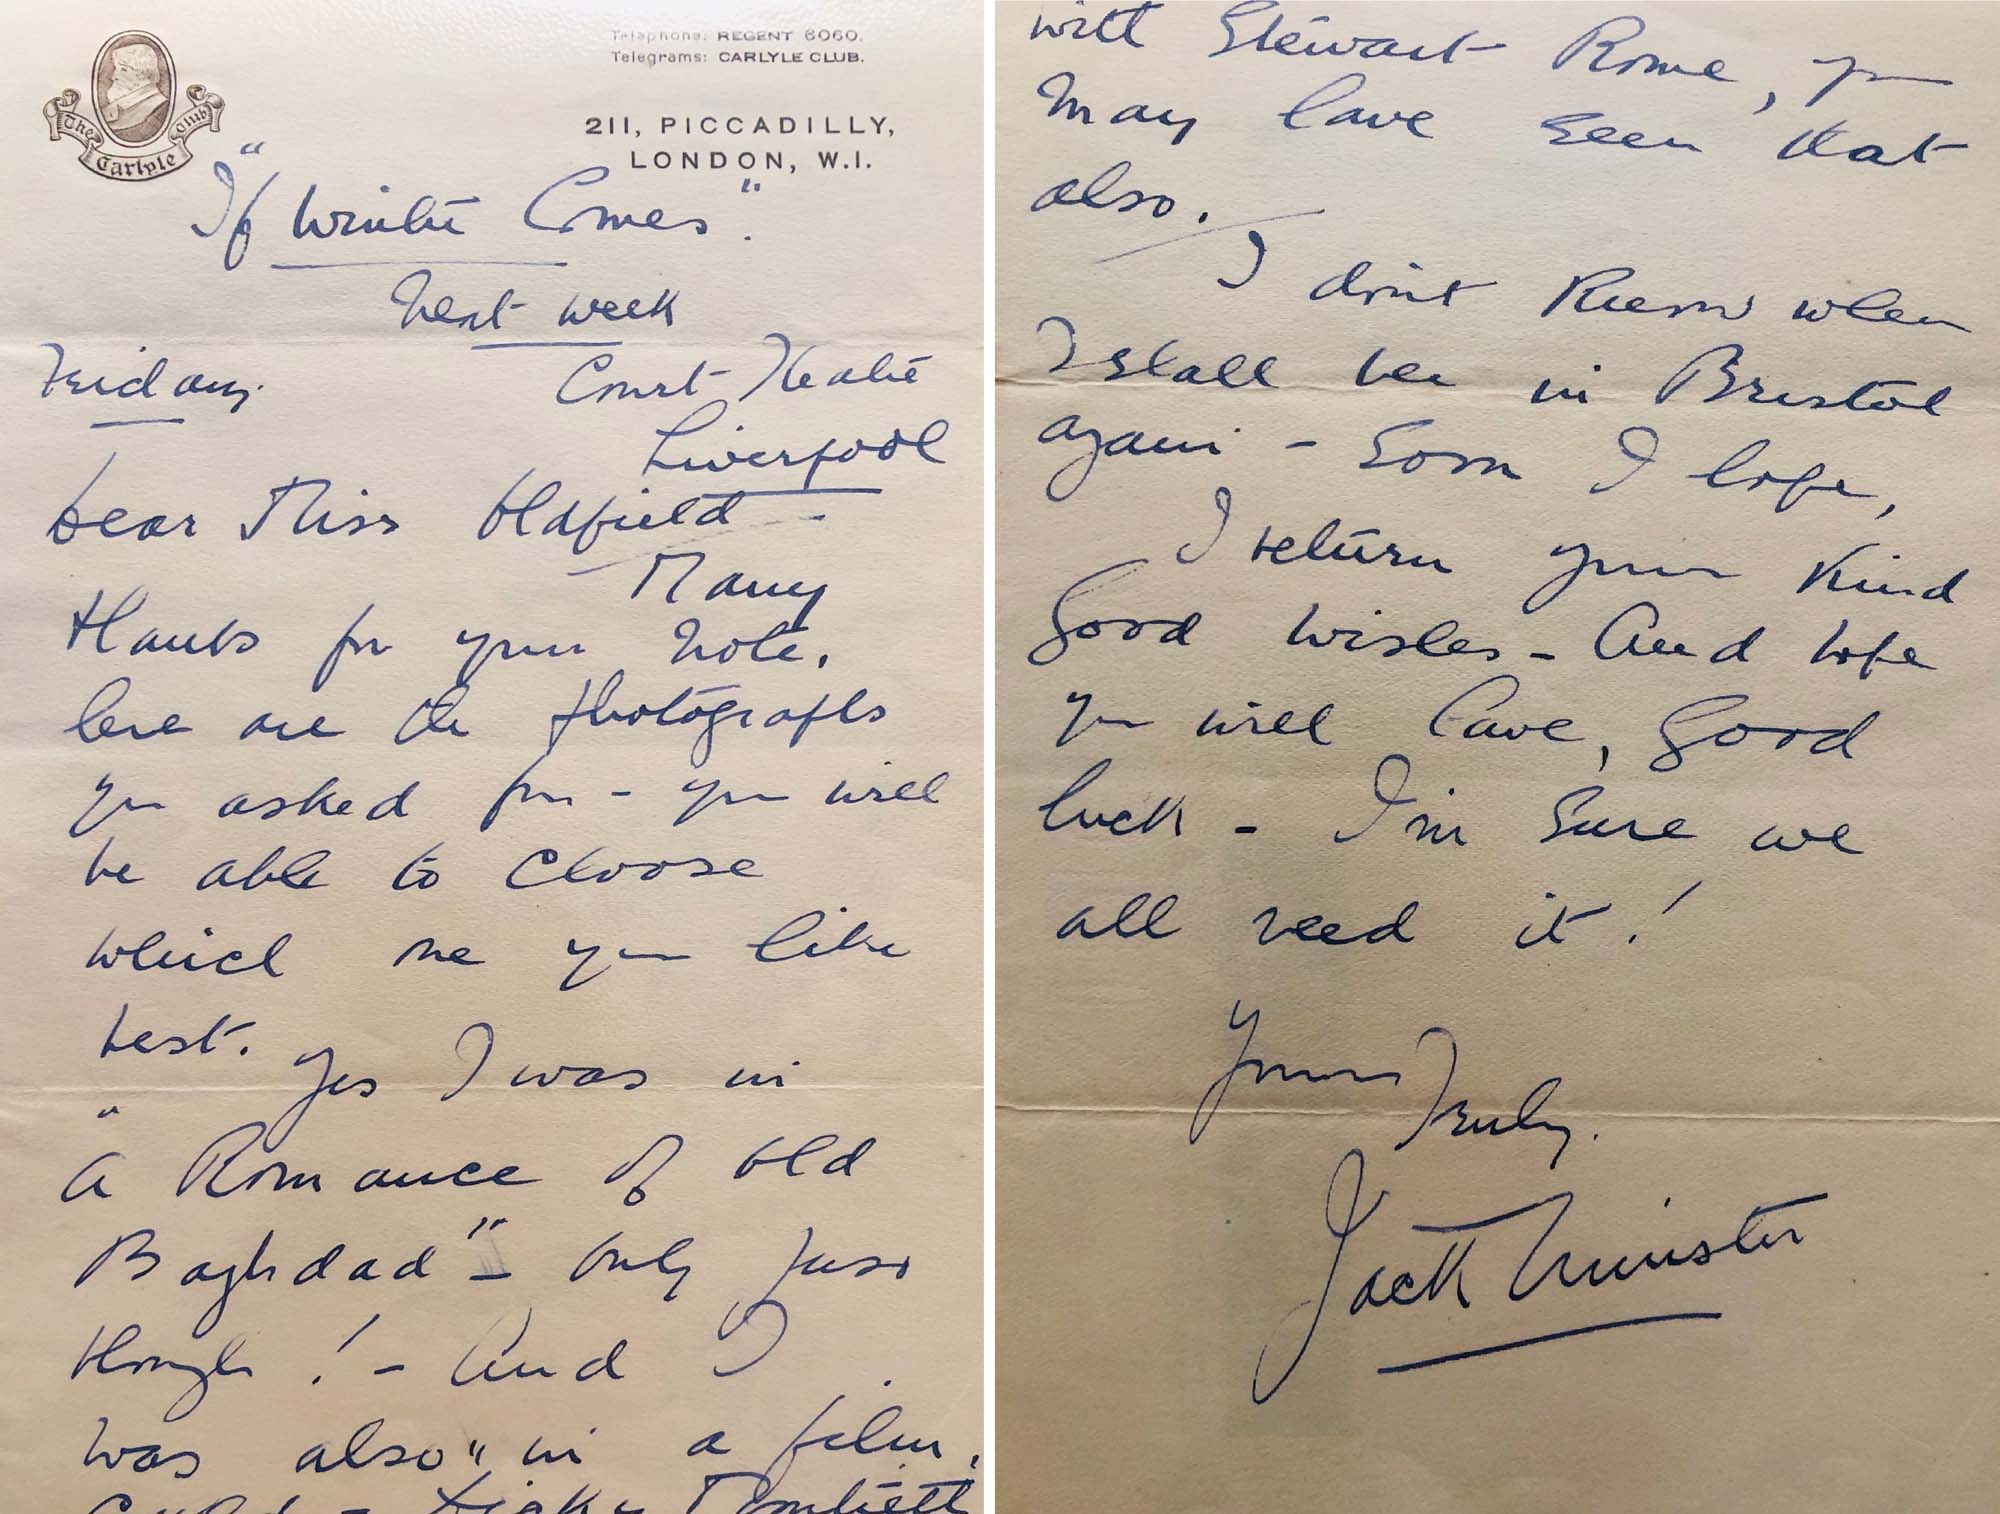 The Carlyle Club
Telephone: REGENT 6060.
Telegrams: CARLYLE CLUB.
211, PICCADILLY,
LONDON, W.1.
"If Winter Comes".
Next week
Friday.
Court Theatre
Liverpool
Dear Miss Oldfield -
Many
thanks for your note,
here are the photographs
you asked for - you will
be able to choose
which one you like
best.
Yes I was in
"A Romance of Old
Baghdad" - only just
though! - And I
was also in a film,
with Stewart Rome, you
may have seen that
also.
I don't know when
I shall be in Bristol
again - soon I hope,
I return your kind
good wishes - And hope
you will have, good
luck - I'm sure we
all need it!
Yours
Truly.
Jack Minister